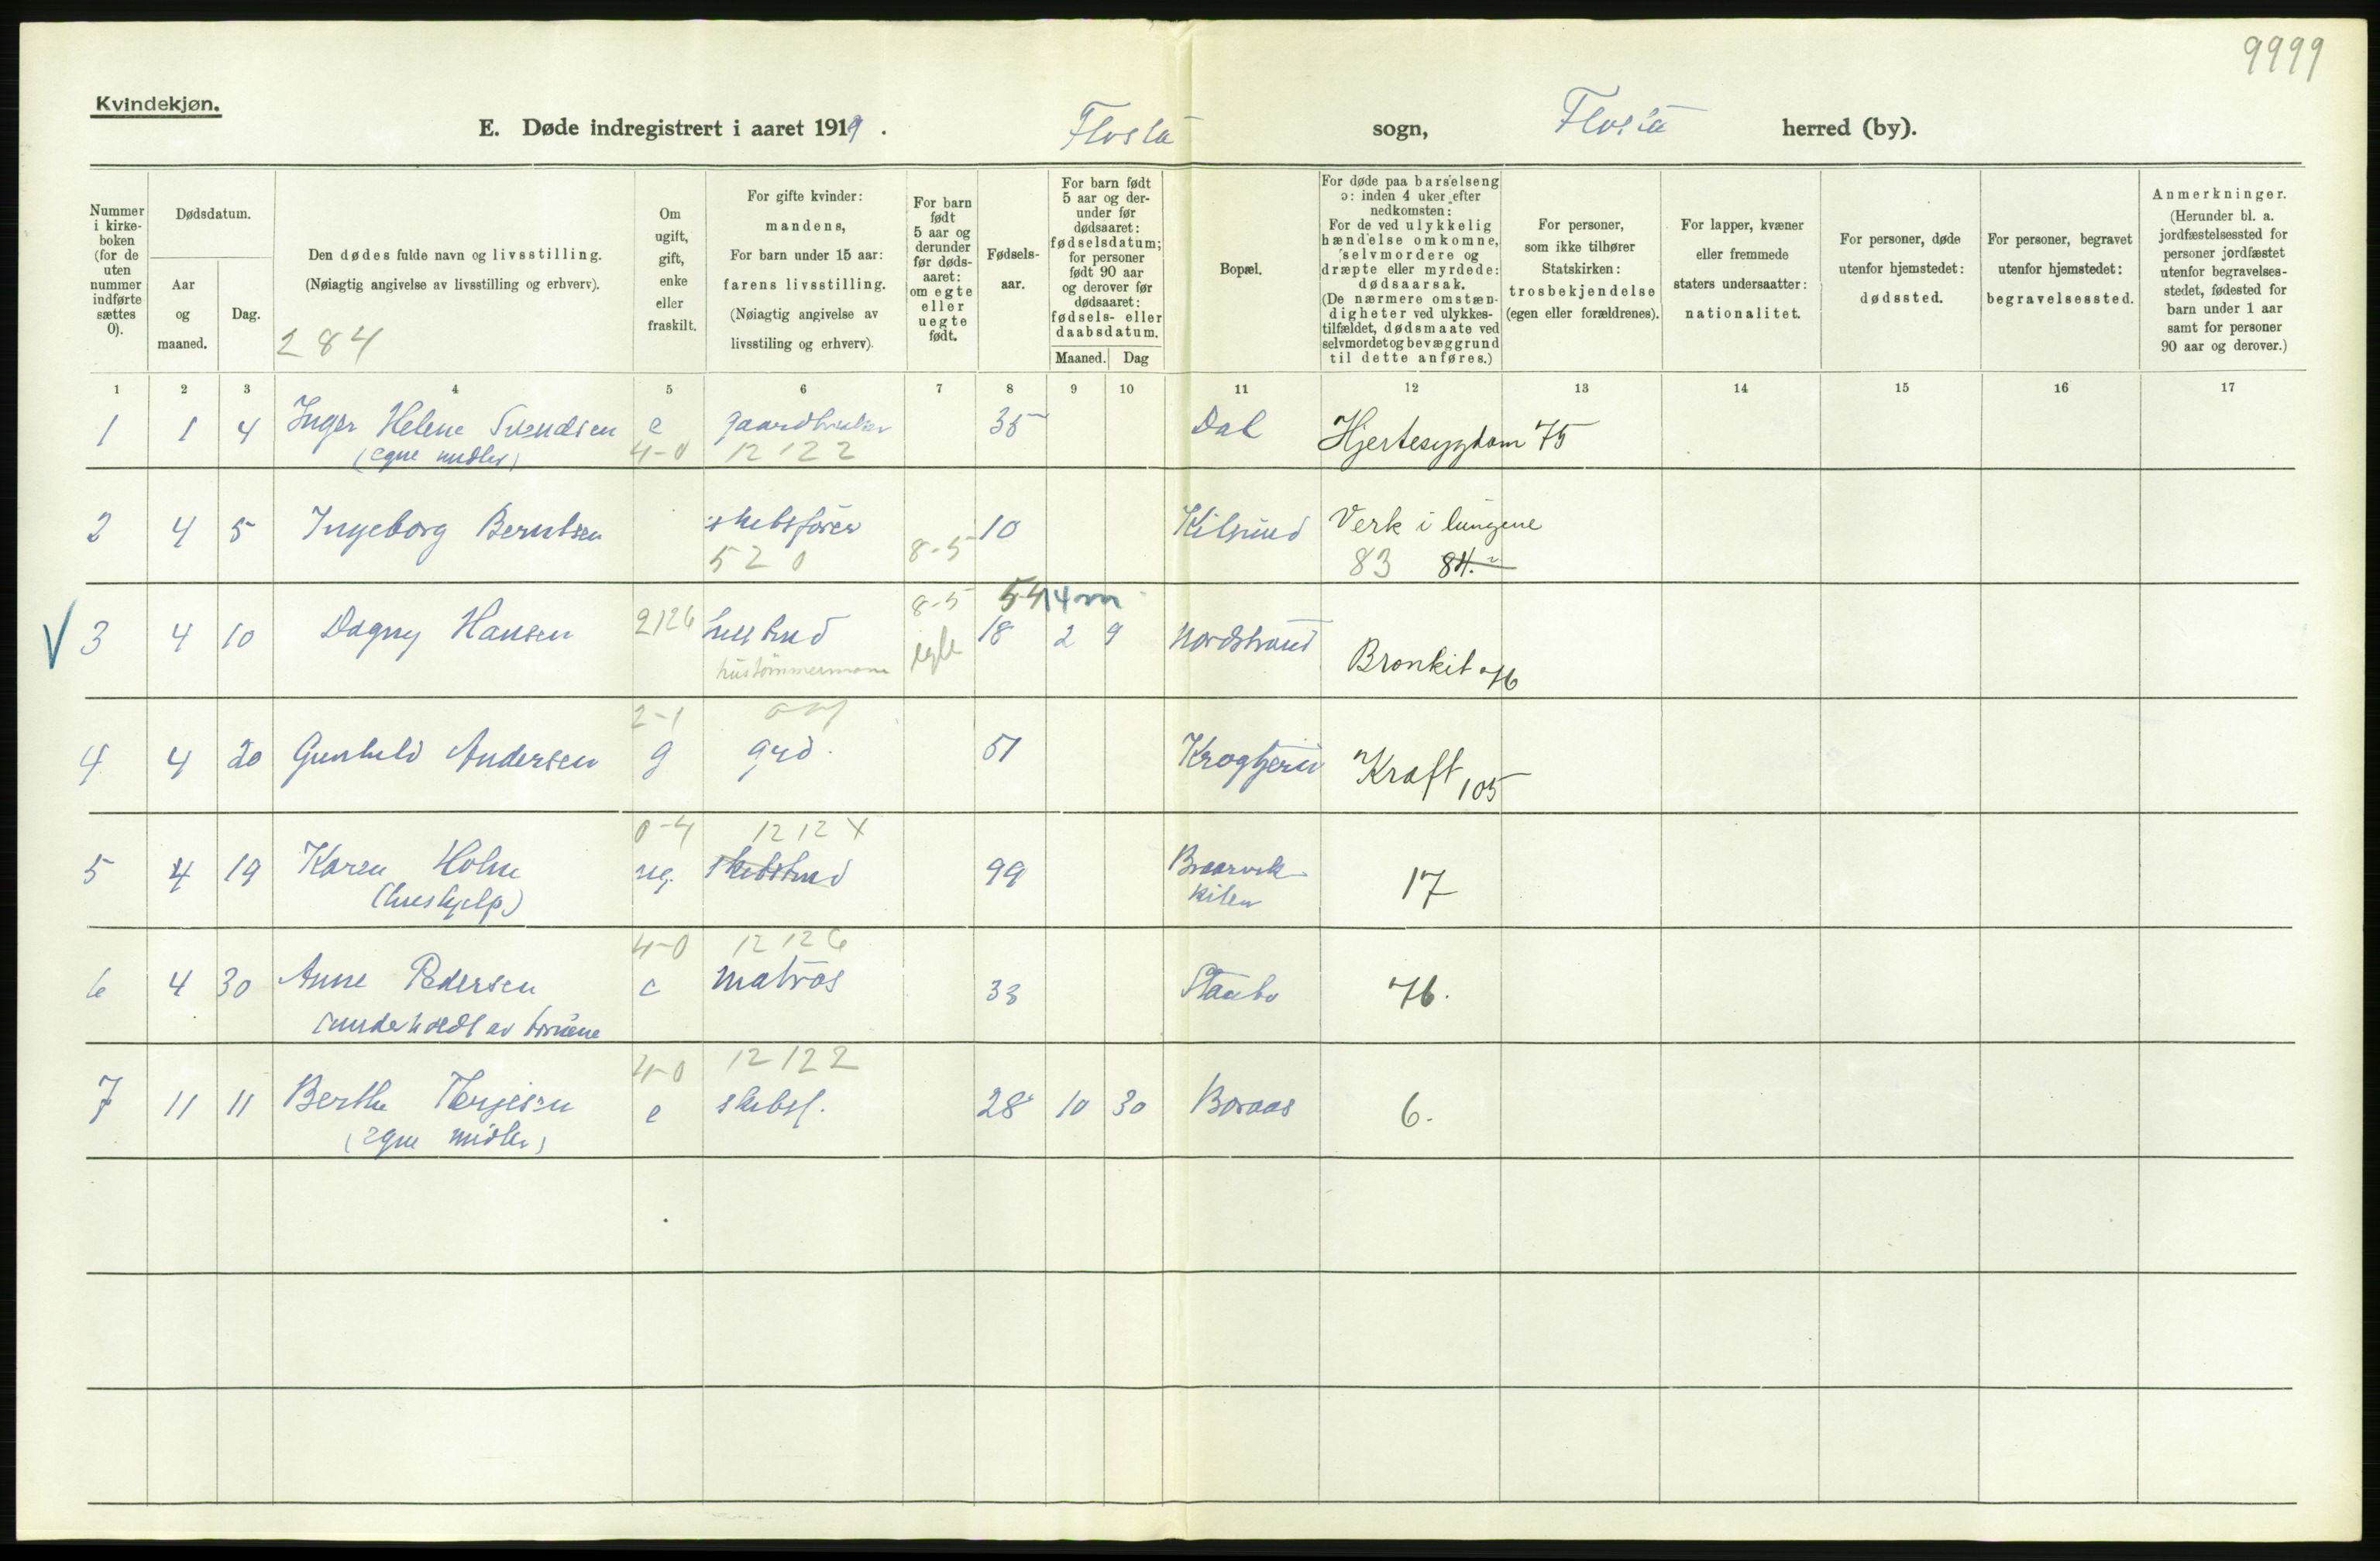 9999
Kvindekjøn.
E. Døde indregistrert i aaret 1919. Flosta sogn, Flosta herred (by).
Nummer i kirkeboken (for de uten nummer indførte sættes 0).
Dødsdatum.
Aar og maaned.
Dag.
Den dødes fulde navn og livsstilling.
(Nøiagtig angivelse av livsstilling og erhverv).
284
Om ugift, gift, enke eller fraskilt.
For gifte kvinder: mandens,
For barn under 15 aar: farens livsstilling.
(Nøiagtig angivelse av livsstiling og erhverv).
For barn født 5 aar og derunder før dødsaaret: om egte eller uegte født.
Fødselsaar.
For barn født 5 aar og derunder før dødsaaret: fødselsdatum; for personer født 90 aar og derover før dødsaaret: fødsels- eller daabsdatum.
Maaned. Dag
Bopæl.
For døde paa barselseng ɔ: inden 4 uker efter nedkomsten:
For de ved ulykkelig hændelse omkomne, selvmordere og dræpte eller myrdede: dødsaarsak.
(De nærmere omstændigheter ved ulykkestilfældet, dødsmaate ved selvmordet og bevæggrund til dette anføres.)
For personer, som ikke tilhører Statskirken: trosbekjendelse (egen eller forældrenes).
For lapper, kvæner eller fremmede staters undersaatter: nationalitet.
For personer, døde utenfor hjemstedet: dødssted.
For personer, begravet utenfor hjemstedet: begravelsessted.
Anmerkninger.
(Herunder bl. a. jordfæstelsessted for personer jordfæstet utenfor begravelsesstedet, fødested for barn under 1 aar samt for personer 90 aar og derover.)
1 2 3 4 5 6 7 8 9 10 11 12 13 14 15 16 17
1 1 4 Inger Helene Svendsen e gaardbruker 35 Dal Hjertesygdom 75
(egne midler) 4-0 12 122
2 4 5 Ingeborg Berntsen skibsfører 10 Kilsund Verk i lungene
52 0 8-5 83 84.
8-5 54 14 m
V 3 4 10 Dagny Hansen 2126 18 2 9 Nordstrand Bronkit 76
hustømmermann egte
2-1
4 4 20 Gunhild Andersen g grd. 51 Krogtjern Kraft 105
0-4 12 12 X
5 4 19 Karen Holm ug. skibstmd 99 Braarvik- 17
(hushjelp) kilen
4-0 12 126
6 4 30 Anne Pedersen e matros 33 Staubo 76.
(underholdt av børnene
4-0 12 122
7 11 11 Berthe Terjesen e skibsf. 28 10 30 Boraas 6.
(egne midler)